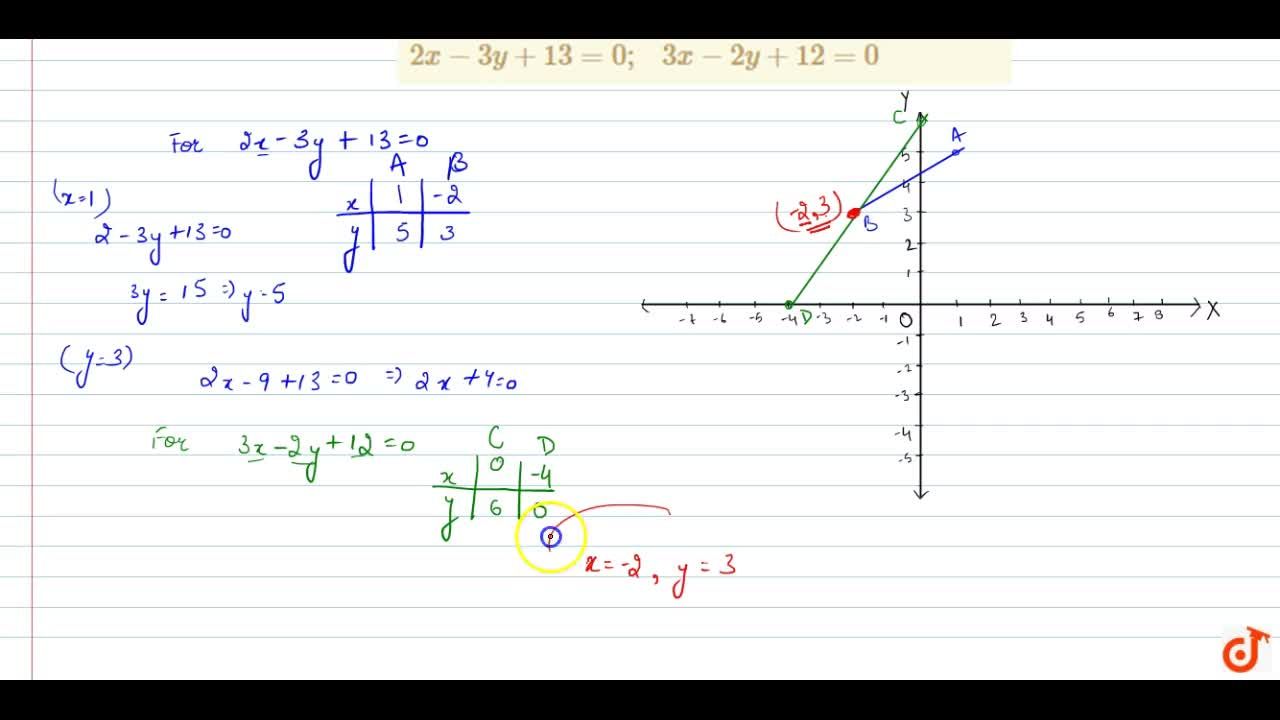 2x − 3y + 13 = 0; 3x − 2y + 12 = 0
For 2x - 3y + 13 = 0
A B
(x=1)
x 1 -2
2 - 3y + 13 = 0
y 5 3
3y = 15 => y = 5
(y=3)
2x - 9 + 13 = 0 => 2x + 4 = 0
For 3x - 2y + 12 = 0
C D
x 0 -4
y 6 0
x = -2, y = 3
Y
C
A
5
4
(-2,3)
3
B
2
1
-7 -6 -5 -4 D -3 -2 -1 O 1 2 3 4 5 6 7 8 X
-1
-2
-3
-4
-5